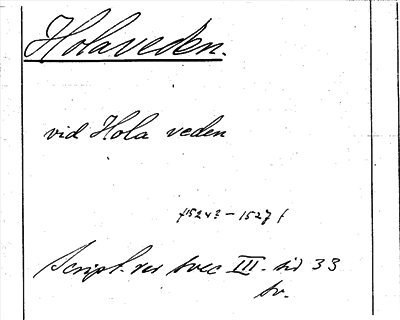 Holaveden.
vid Hola veden
/1524?-1527/
Script. rer svec III. sid 33
sv.